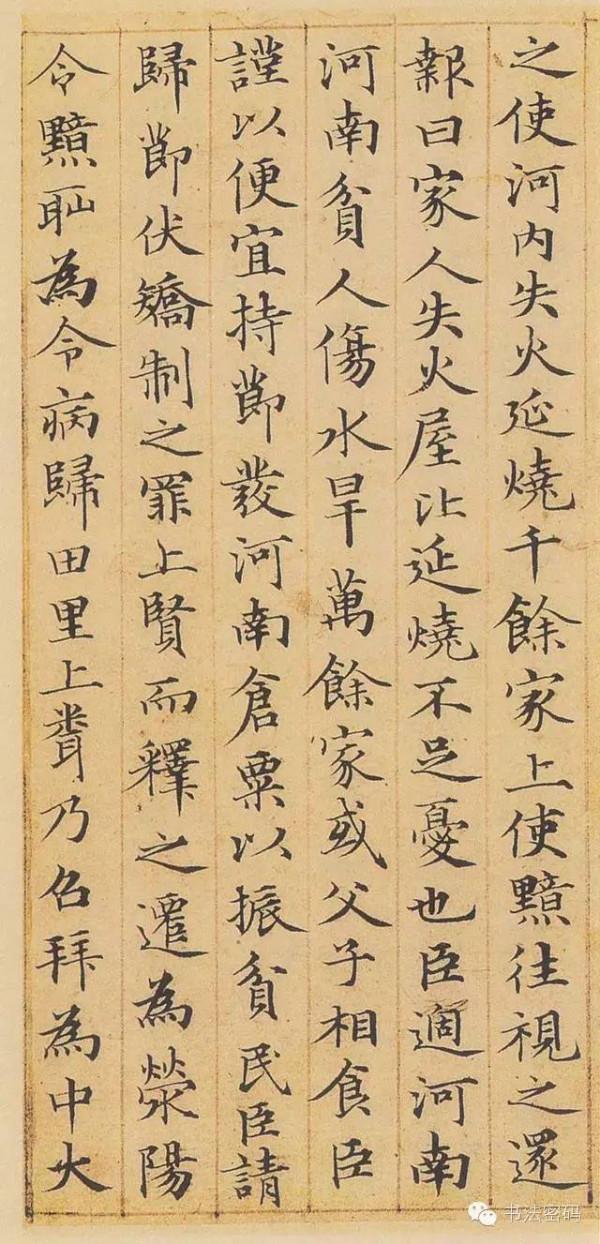 之使河内失火延燒千餘家上使黯往視之還
報曰家人失火屋比延燒不足憂也臣適河南
河南貧人傷水旱萬餘家或父子相食臣
謹以便宜持節發河南倉粟以振貧民臣請
歸節伏矯制之罪上賢而釋之遷為滎陽
令黯恥為令病歸田里上聞乃召拜為中大
书法密码